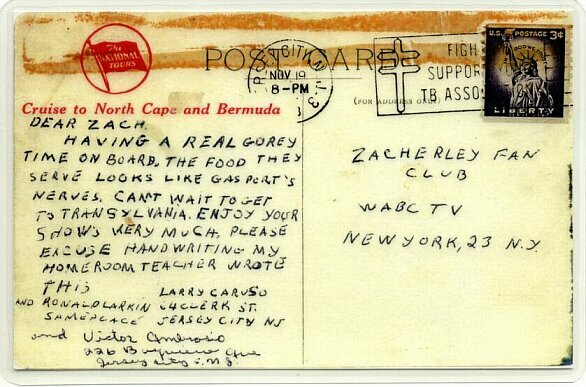 The
NATIONAL
TOURS
POST CARD
CITY N.J.
NOV 19
8-PM
FIGH
SUPPOR
TB ASSO
U.S. POSTAGE 3¢
IN GOD WE TRUST
LIBERTY
Cruise to North Cape and Bermuda
(FOR ADDRESS ONLY)
DEAR ZACH,
HAVING A REAL GOREY
TIME ON BOARD. THE FOOD THEY
SERVE LOOKS LIKE GASPORT'S
NERVES. CAN'T WAIT TO GET
TO TRANSYLVANIA. ENJOY YOUR
SHOWS VERY MUCH. PLEASE
EXCUSE HANDWRITING MY
HOMEROOM TEACHER WROTE
THIS
LARRY CARUSO
AND RONALD LARKIN 54 CLERK ST.
SAMEPLACE JERSEY CITY NJ
and Victor Ambrosio
226 Ave
Jersey City, N.J.
ZACHERLEY FAN
CLUB
WABC TV
NEW YORK, 23 N.Y.